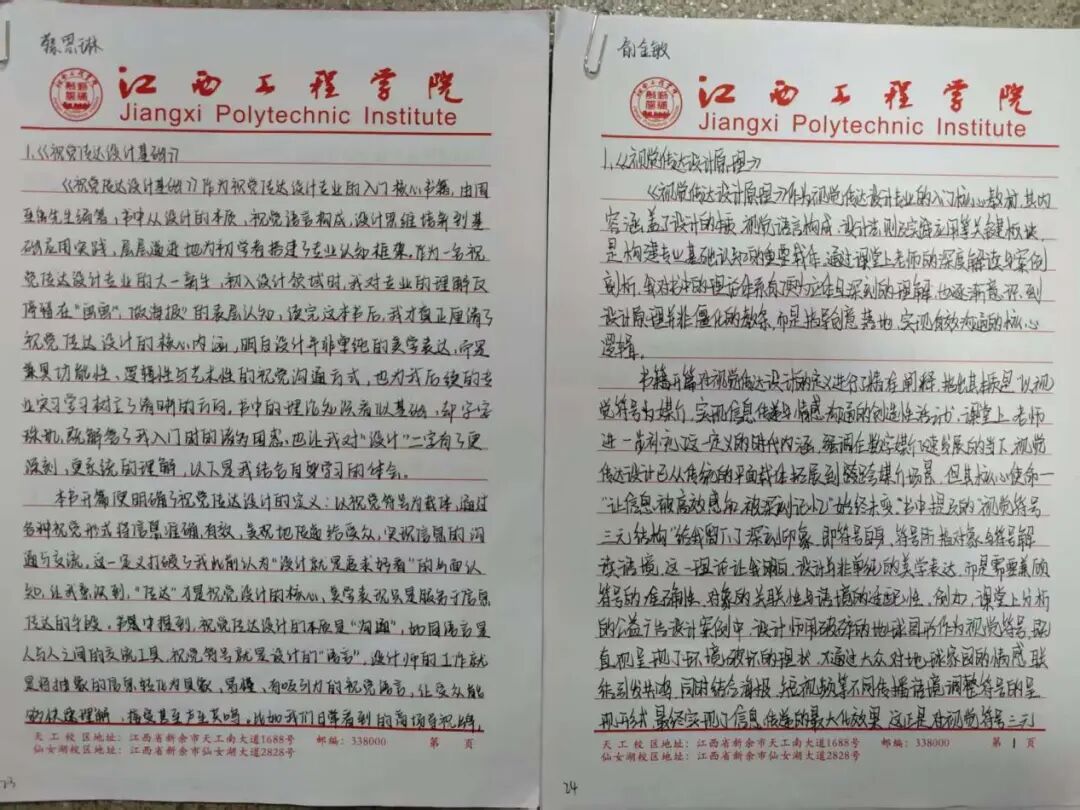 江西工程学院
Jiangxi Polytechnic Institute
1.《视觉传达设计基础》
《视觉传达设计基础》作为视觉传达设计专业的入门核心书籍,由周
先生编著,书中从设计的本质、视觉语言构成、设计思维培养到基
础应用实践,层层递进地为初学者搭建了专业认知框架,作为一名视
觉传达设计专业的大一新生,初入设计领域时,我对专业的理解仅
停留在“画画”、做海报”的表层认知,读完这本书后,我才真正厘清了
视觉传达设计的核心内涵,明白设计并非单纯的美学表达,而是
兼具功能性、逻辑性与艺术性的视觉沟通方式,也为我后续的专
业学习树立了清晰的方向,书中的理论知识看似基础,却字字
珠玑,既解答了我入门时的诸多困惑,也让我对“设计”二字有了更
深刻、更系统的理解,以下是我结合自身学习的体会。
本书开篇便明确了视觉传达设计的定义:以视觉符号为载体,通过
各种视觉形式将信息准确、有效、美观地传递给受众,实现信息的沟
通与交流,这一定义打破了我此前认为“设计就是追求好看”的片面认
知,让我意识到,“传达”才是视觉设计的核心,美学表现只是服务于信息
传达的手段,书中提到,视觉传达设计的本质是“沟通”,如同语言是
人与人之间的交流工具,视觉符号就是设计的“语言”,设计师的工作就
是将抽象的信息转化为具象、易懂、有吸引力的视觉语言,让受众能
够快速理解、接受甚至产生共鸣,比如我们日常看到的商场导视牌,
天工校区地址:江西省新余市天工南大道1688号 邮编:338000 第 页
仙女湖校区地址:江西省新余市仙女湖大道2828号
23
江西工程学院
Jiangxi Polytechnic Institute
1.《视觉传达设计原理》
《视觉传达设计原理》作为视觉传达设计专业的入门核心教材,其内
容涵盖了设计的本质、视觉语言构成、设计法则及实践应用等关键板块,
是构建专业基础认知的重要载体,通过课堂上老师的深度解读与案例
剖析,我对书中的理论体系有了更为立体与深刻的理解,也逐渐意识到
设计原理并非僵化的教条,而是指导创意落地、实现有效沟通的核心
逻辑。
书籍开篇对视觉传达设计的定义进行了精准阐释,指出其本质是“以视
觉符号为媒介,实现信息传递与情感沟通的创造性活动”,课堂上,老师
进一步补充这一定义的时代内涵,强调在数字媒介快速发展的当下,视觉
传达设计已从传统的平面载体拓展到跨媒介场景,但其核心使命一
“让信息被高效感知、被深刻记忆”始终未变,书中提及的“视觉符号
三元结构”给我留下了深刻印象,即符号自身、符号所指对象与符号解
读语境,这一理论让我明白,设计并非单纯的美学表达,而是需要兼顾
符号的准确性、对象的关联性与语境的适配性,例如,课堂上分析
的公益广告设计案例中,设计师用破碎的地球图形作为视觉符号,既
直观呈现了环境破坏的现状,又通过大众对地球家园的情感联
结引发共鸣,同时结合海报、短视频等不同传播语境调整符号的呈
现形式,最终实现了信息传递的最大化效果,这正是对视觉符号三元
天工校区地址:江西省新余市天工南大道1688号 邮编:338000 第 1 页
仙女湖校区地址:江西省新余市仙女湖大道2828号
24